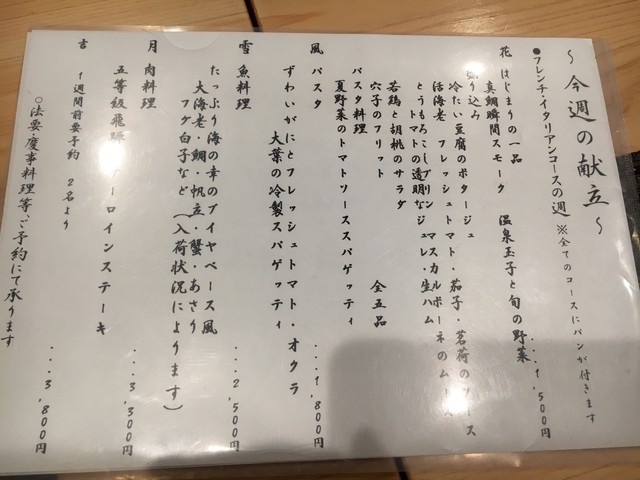 ～今週の献立～
●フレンチ・イタリアンコースの週 ※全てのコースにパンが付きます
花 はじまりの一品 ....1,500円
真鯛瞬間スモーク 温泉玉子と旬の野菜
り込み
冷たい豆腐のポタージュ
活海老 フレッシュトマト・茄子・茗荷のソース
とうもろこしプリン マスカルポーネのムース
トマトの透明なジュレ・生ハム
若鶏と胡桃のサラダ
穴子のフリット 全五品
パスタ料理
夏野菜のトマトソーススパゲッティ
風 パスタ ....1,800円
ずわいがにとフレッシュトマト・オクラ
大葉の冷製スパゲッティ
雪 魚料理 ....2,500円
たっぷり海の幸のブイヤベース風
大海老・鯛・帆立・蟹・あさり
フグ白子など（入荷状況によります）
月 肉料理 ....3,300円
五等級飛騨 ーロインステーキ
吉 1週間前要予約 2名より ....3,800円
○法要・慶事料理等、ご予約にて承ります